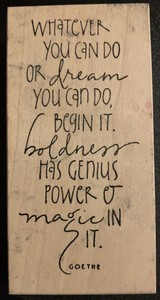 WHATEVER
YOU CAN DO
OR dream
YOU CAN DO,
BEGIN IT.
boldness
HAS GENIUS
POWER &
magic IN
IT.
GOETHE